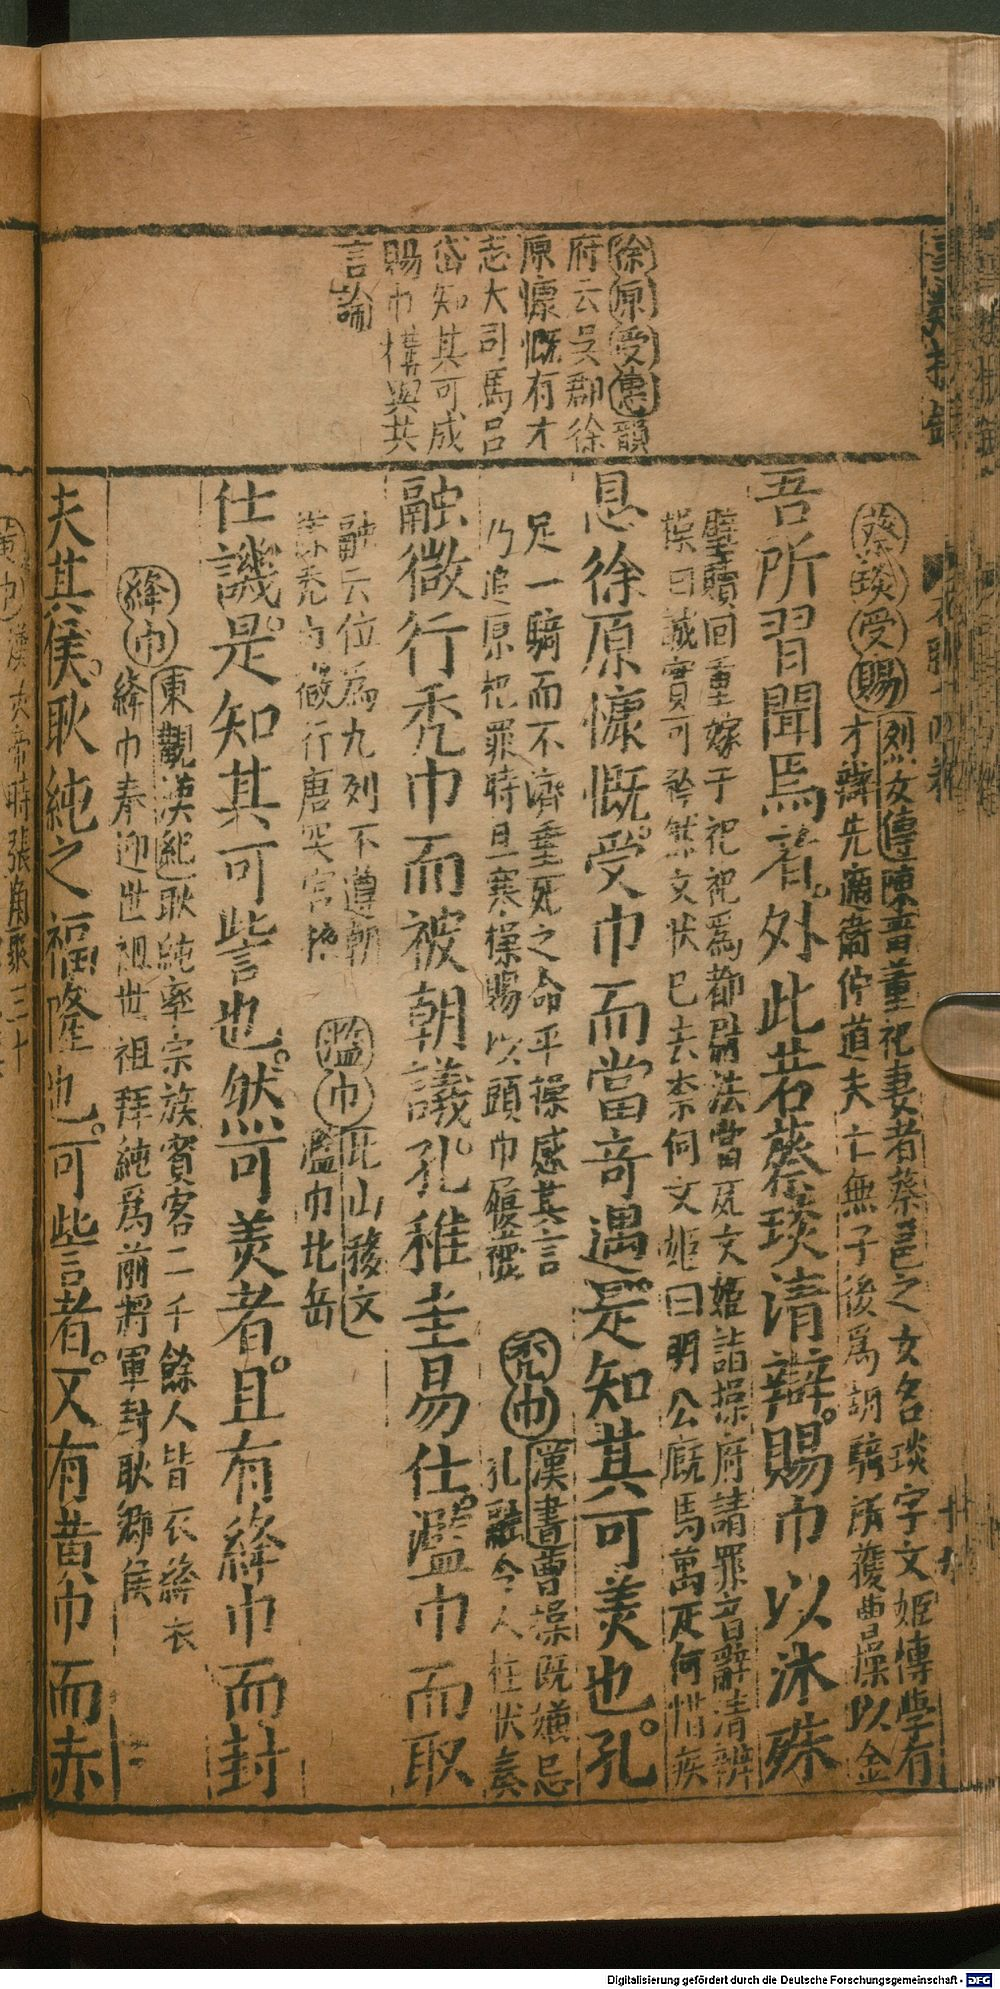 徐原受傳韻
府云吳郡徐
原慷慨有才
志大司馬呂
岱知其可成
賜巾褠與共
言論
蔡琰受賜
烈女傳陳留董祀妻者蔡邕之女名琰字文姬博學有
才辯先適衞仲道夫亡無子後爲胡騎所獲曹操以金
吾所習聞焉者。外此若蔡琰清辯。賜巾以沐殊
璧贖回重嫁于祀祀爲都尉法當死文姬詣操府請罪音辭清辨
操曰誠實可矜然文狀已去柰何文姬曰明公廐馬萬疋何惜疾
恩徐原慷慨。受巾而當奇遇。是知其可羨也。孔
足一騎而不濟垂死之命乎操感其言
乃追原祀罪時且寒操賜以頭巾履襪
禿巾
漢書曹操既嫌忌
孔融令人枉狀奏
融微行禿巾而被朝議。孔稚圭易仕。濫巾而取
融云位爲九列不遵朝
禿巾微行唐突宮掖
濫巾
北山移文
濫巾北岳
仕譏。是知其可訾也。然可羨者。且有絳巾而封
絳巾
東觀漢紀耿純率宗族賓客二千餘人皆衣絳衣
絳巾奉迎世祖世祖拜純爲前將軍封耿鄉侯
夫其侯。耿純之福隆也。可訾者。又有黃巾而赤
黃巾漢灵帝時張角聚三十
十九
Digitalisierung gefördert durch die Deutsche Forschungsgemeinschaft - DFG